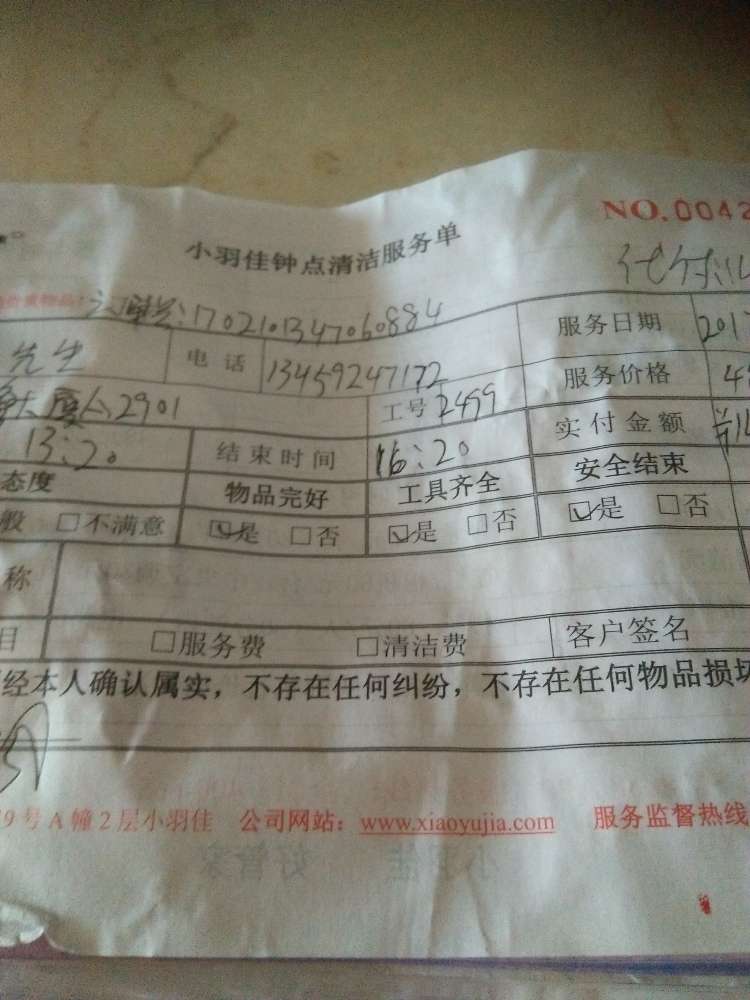 NO.0042
小羽佳钟点清洁服务单
:1702101347060884
服务日期 201
先生 电话 13459247172 服务价格
2901 工号 2499 实付金额
13:20 结束时间 16:20 安全结束
态度 物品完好 工具齐全
般 □不满意 ☑是 □否 ☑是 □否 ☑是 □否
称
目 □服务费 □清洁费 客户签名
经本人确认属实，不存在任何纠纷，不存在任何物品损坏
9号A幢2层小羽佳 公司网站：www.xiaoyujia.com 服务监督热线